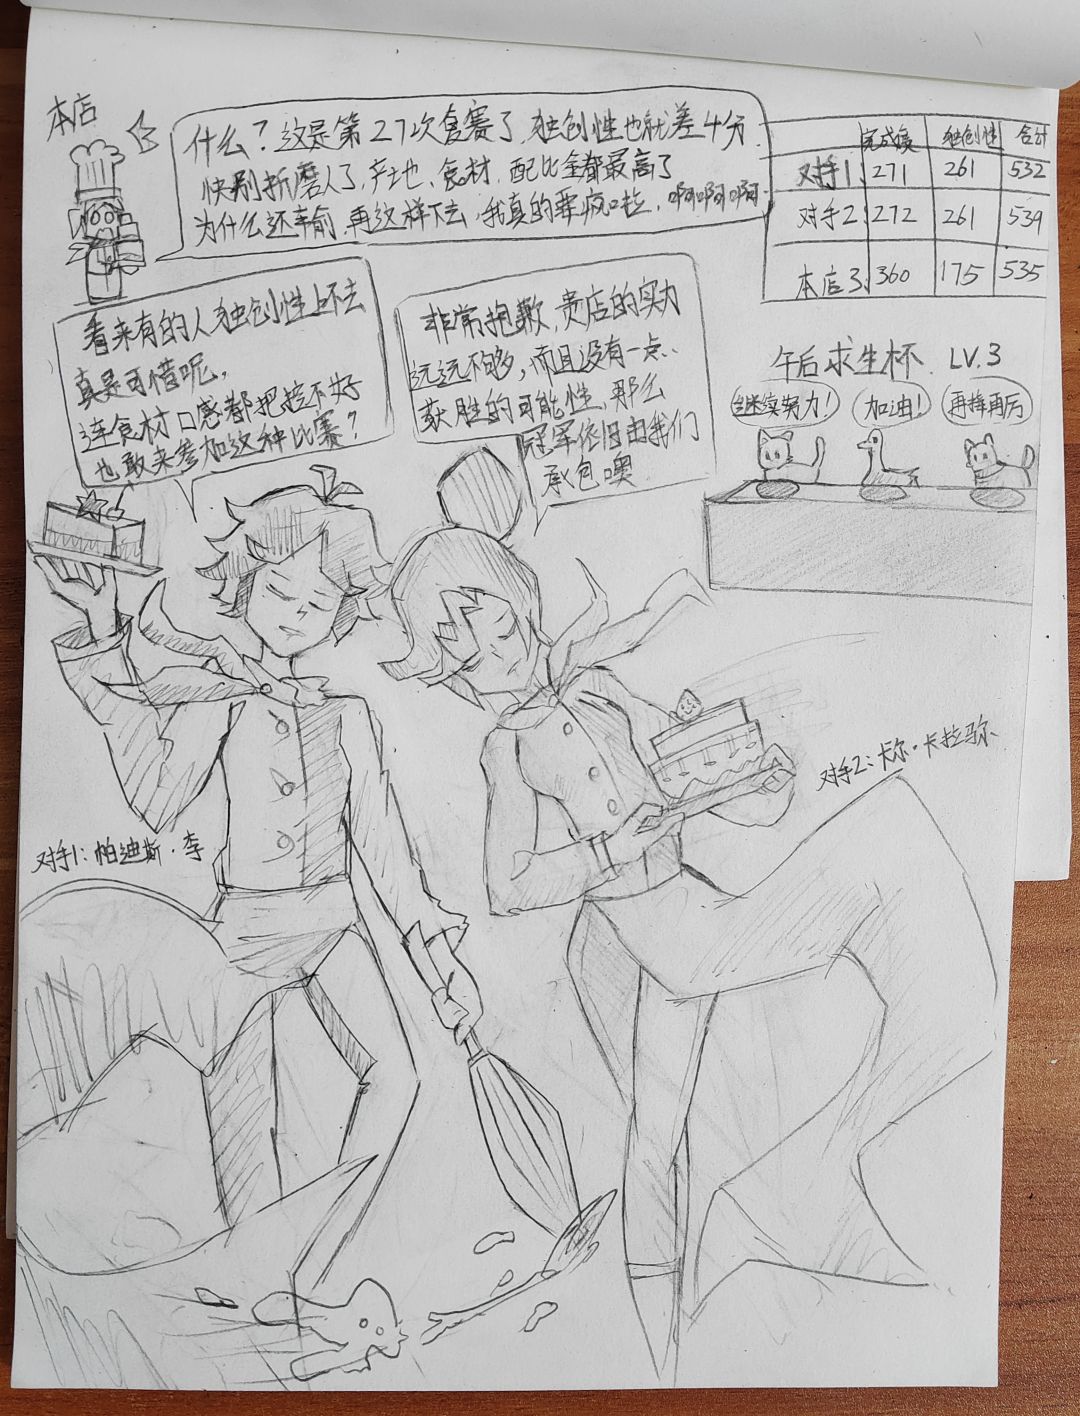 本店
什么？这是第27次复赛了，独创性也就差4分，
快别折磨人了，产地、食材、配比全都最高了
为什么还车俞，再这样下去，我真的要疯啦，啊啊啊
完成度 独创性 合计
对手1 271 261 532
对手2 272 261 539
本店3 360 175 535
看来有的人独创性上不去
真是可惜呢，
连食材口感都把控不好
也敢来参加这种比赛？
非常抱歉，贵店的实力
远远不够，而且没有一点..
获胜的可能性，那么
冠军依旧由我们
承包噢
午后求生杯 LV.3
继续努力！
加油！
再接再厉
对手2：卡尔·卡拉马尔
对手1：帕迪斯·李